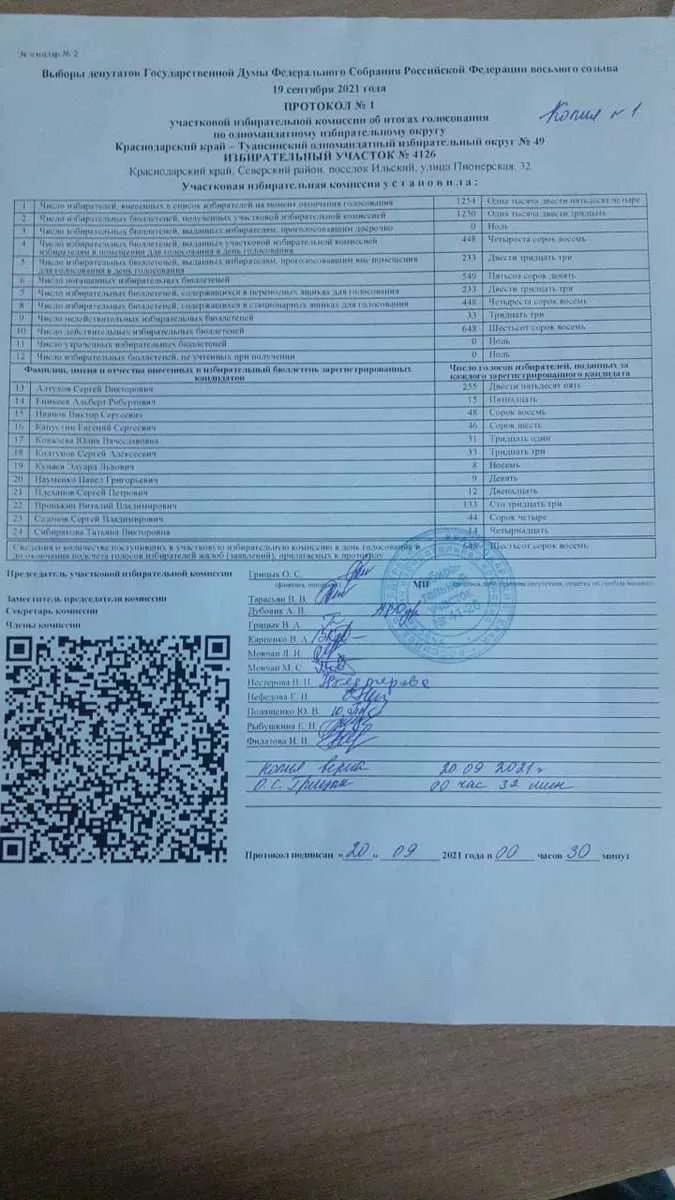 Экземпляр № 2
Выборы депутатов Государственной Думы Федерального Собрания Российской Федерации восьмого созыва
19 сентября 2021 года
ПРОТОКОЛ № 1
Копия №1
участковой избирательной комиссии об итогах голосования
по одномандатному избирательному округу
Краснодарский край – Туапсинский одномандатный избирательный округ № 49
ИЗБИРАТЕЛЬНЫЙ УЧАСТОК № 4126
Краснодарский край, Северский район, поселок Ильский, улица Пионерская, 32
Участковая избирательная комиссия у с т а н о в и л а :
1 Число избирателей, внесенных в список избирателей на момент окончания голосования 1254 Одна тысяча двести пятьдесят четыре
2 Число избирательных бюллетеней, полученных участковой избирательной комиссией 1230 Одна тысяча двести тридцать
3 Число избирательных бюллетеней, выданных избирателям, проголосовавшим досрочно 0 Ноль
4 Число избирательных бюллетеней, выданных участковой избирательной комиссией
избирателям в помещении для голосования в день голосования 448 Четыреста сорок восемь
5 Число избирательных бюллетеней, выданных избирателям, проголосовавшим вне помещения
для голосования в день голосования 233 Двести тридцать три
6 Число погашенных избирательных бюллетеней 549 Пятьсот сорок девять
7 Число избирательных бюллетеней, содержащихся в переносных ящиках для голосования 233 Двести тридцать три
8 Число избирательных бюллетеней, содержащихся в стационарных ящиках для голосования 448 Четыреста сорок восемь
9 Число недействительных избирательных бюллетеней 33 Тридцать три
10 Число действительных избирательных бюллетеней 648 Шестьсот сорок восемь
11 Число утраченных избирательных бюллетеней 0 Ноль
12 Число избирательных бюллетеней, не учтенных при получении 0 Ноль
Фамилии, имена и отчества внесенных в избирательный бюллетень зарегистрированных
кандидатов
Число голосов избирателей, поданных за
каждого зарегистрированного кандидата
13 Алтухов Сергей Викторович 255 Двести пятьдесят пять
14 Еникеев Альберт Робертович 15 Пятнадцать
15 Иванов Виктор Сергеевич 48 Сорок восемь
16 Капустин Евгений Сергеевич 46 Сорок шесть
17 Ковалева Юлия Вячеславовна 31 Тридцать один
18 Колтунов Сергей Алексеевич 33 Тридцать три
19 Кунаев Эдуард Львович 8 Восемь
20 Науменко Павел Григорьевич 9 Девять
21 Плеханов Сергей Петрович 12 Двенадцать
22 Пронькин Виталий Владимирович 133 Сто тридцать три
23 Саамов Сергей Владимирович 44 Сорок четыре
24 Сибирякова Татьяна Викторовна 14 Четырнадцать
Сведения о количестве поступивших в участковую избирательную комиссию в день голосования и
до окончания подсчета голосов избирателей жалоб (заявлений), прилагаемых к протоколу
648 Шестьсот сорок восемь
Председатель участковой избирательной комиссии Грицык О. С.
МП
Заместитель председателя комиссии Тарасьян В. В.
Секретарь комиссии Дубовик А. В.
Члены комиссии Грицык В. А.
Карпенко В. А.
Мовчан Л. И.
Мовчан М. С.
Нестерова В. П.
Нефедова Е. Н.
Полященко Ю. В.
Рыбушкина Е. Н.
Филатова И. В.
Копия верна 20.09 2021 г
О.С. Грицык 00 час 32 мин
Протокол подписан « 20 » 09 2021 года в 00 часов 30 минут